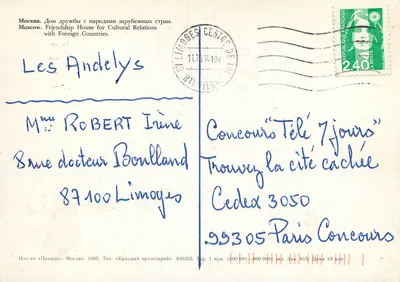 Москва. Дом дружбы с народами зарубежных стран.
Moscow. Friendship House for Cultural Relations
with Foreign Countries.
LIMOGES CENTRE DE
2,40
Les Andelys
Mme ROBERT Irène
8 rue docteur Boulland
87100 Limoges
Concours "Télé 7 jours"
Trouvez la cité cachée
Cedex 3050
99305 Paris Concours
Изд-во «Правда». Москва. 1985. Тип. «Красный пролетарий».